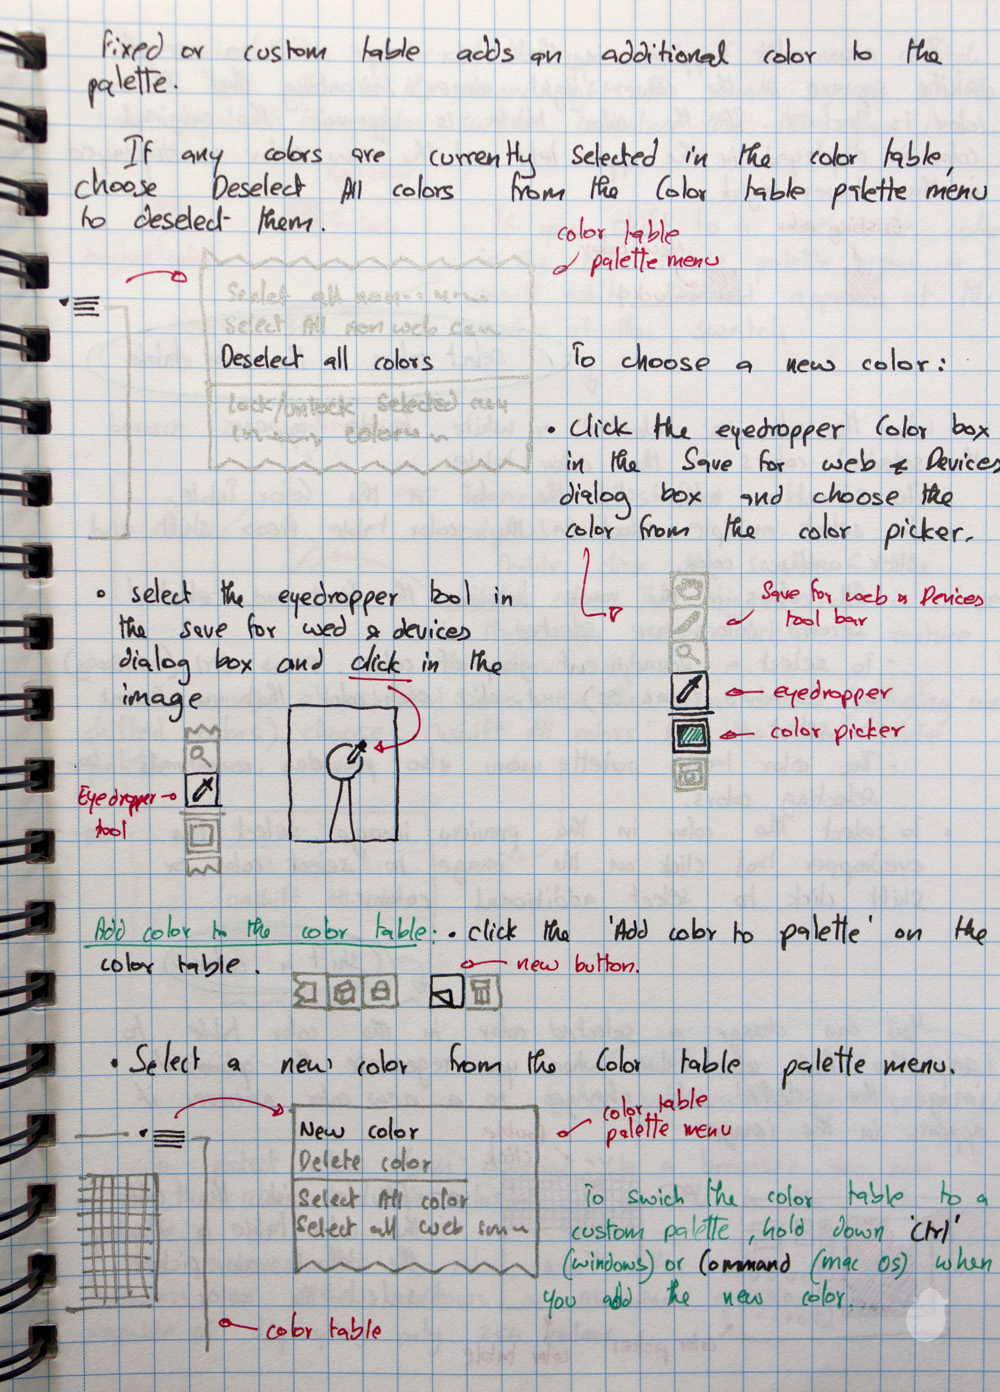 fixed or custom table adds an additional color to the
palette.
If any colors are currently selected in the color table,
choose Deselect All colors from the Color table palette menu
to deselect them.
color table
palette menu
Select all
Select All non web
Deselect all colors
Lock/unlock Selected
To choose a new color:
• Click the eyedropper Color box
in the Save for web & Devices
dialog box and choose the
color from the color picker.
• select the eyedropper tool in
the save for wed & devices
dialog box and click in the
image
Save for web & Devices
tool bar
eyedropper
color picker
Eyedropper
tool
Add color to the color table: • click the 'Add color to palette' on the
color table.
new button.
• Select a new color from the Color table palette menu.
color table
palette menu
New color
Delete color
Select All color
Select all web
To swich the color table to a
custom palette, hold down 'Ctrl'
(windows) or Command (mac OS) when
you add the new color.
color table